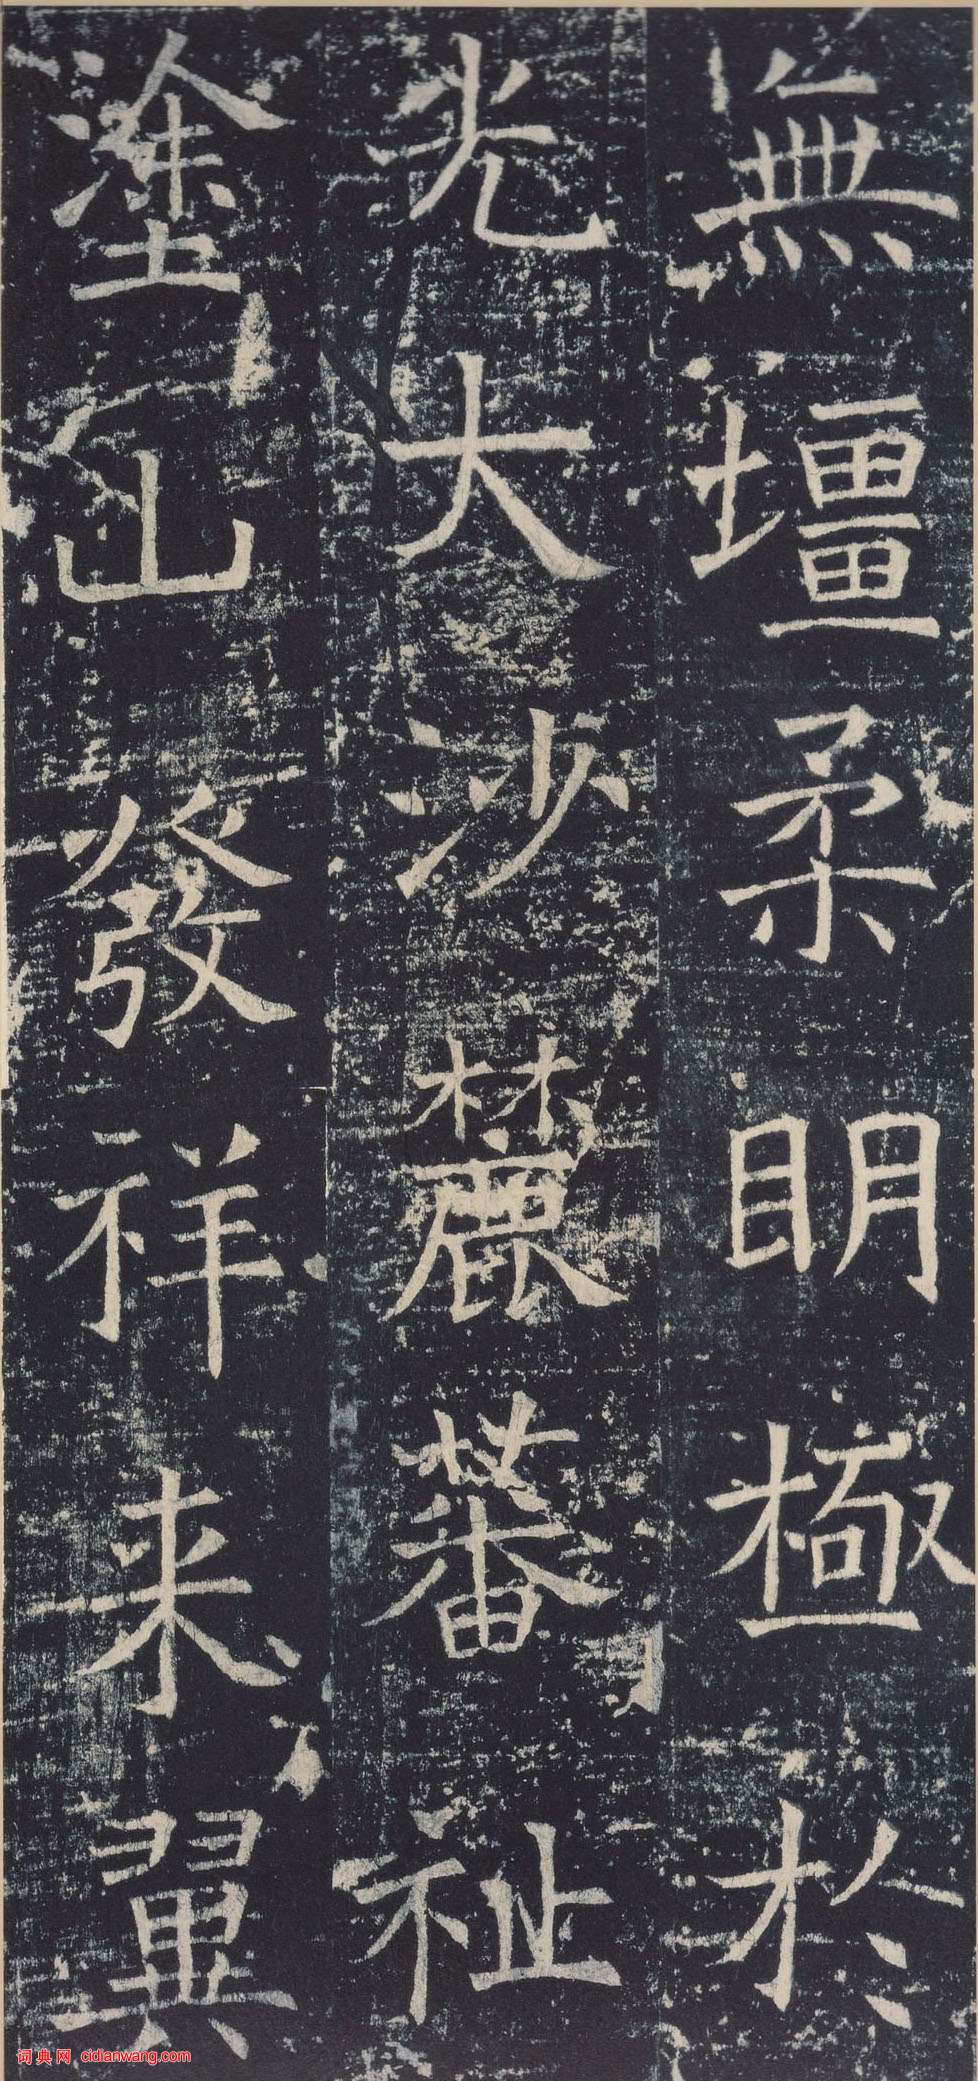 無壃柔眀極於
光大沙麓蕃祉
塗山發祥来翼
词典网 cidianwang.com